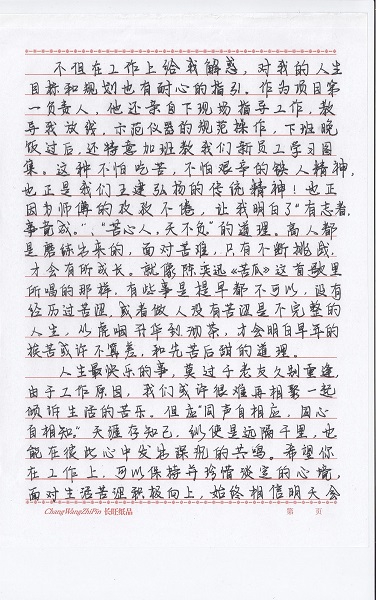 不但在工作上给我解惑，对我的人生
目标和规划也有耐心的指引。作为项目第
一负责人，他还亲自下现场指导工作，教
导我放线，示范仪器的规范操作，下班晚
饭过后，还特意加班教我们新员工学习图
集。这种不怕吃苦，不怕艰辛的铁人精神，
也正是我们王建弘扬的传统精神！也正
因为师傅的孜孜不倦，让我明白了“有志者，
事竟成。”、“苦心人，天不负”的道理。高人都
是磨练出来的，面对苦难，只有不断挑战，
才会有所成长。就像陈奕迅《苦瓜》这首歌里
所唱的那样，有些事是提早都不可以，没有
经历过苦涩，或者做人没有苦涩是不完整的
人生，以虎咽升华到沏茶，才会明白早年的
挨苦或许不算差，和先苦后甜的道理。
人生最快乐的事，莫过于老友久别重逢，
由于工作原因，我们或许很难再相聚一起
倾诉生活的苦乐。但应“同声自相应，同心
自相知。”天涯存知己，纵使是远隔千里，也
能在彼此心中发出深沉的共鸣。希望你
在工作上，可以保持并珍惜淡定的心境，
面对生活苦涩积极向上，始终相信明天会
ChangWangZhiPin 长旺纸品 第 页